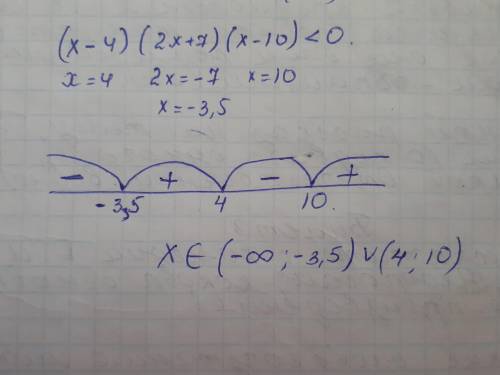 (x-4)(2x+7)(x-10)<0.
x=4 2x=-7 x=10
x=-3,5
- + - +
-3,5 4 10.
X∈(-∞;-3,5)∨(4;10)